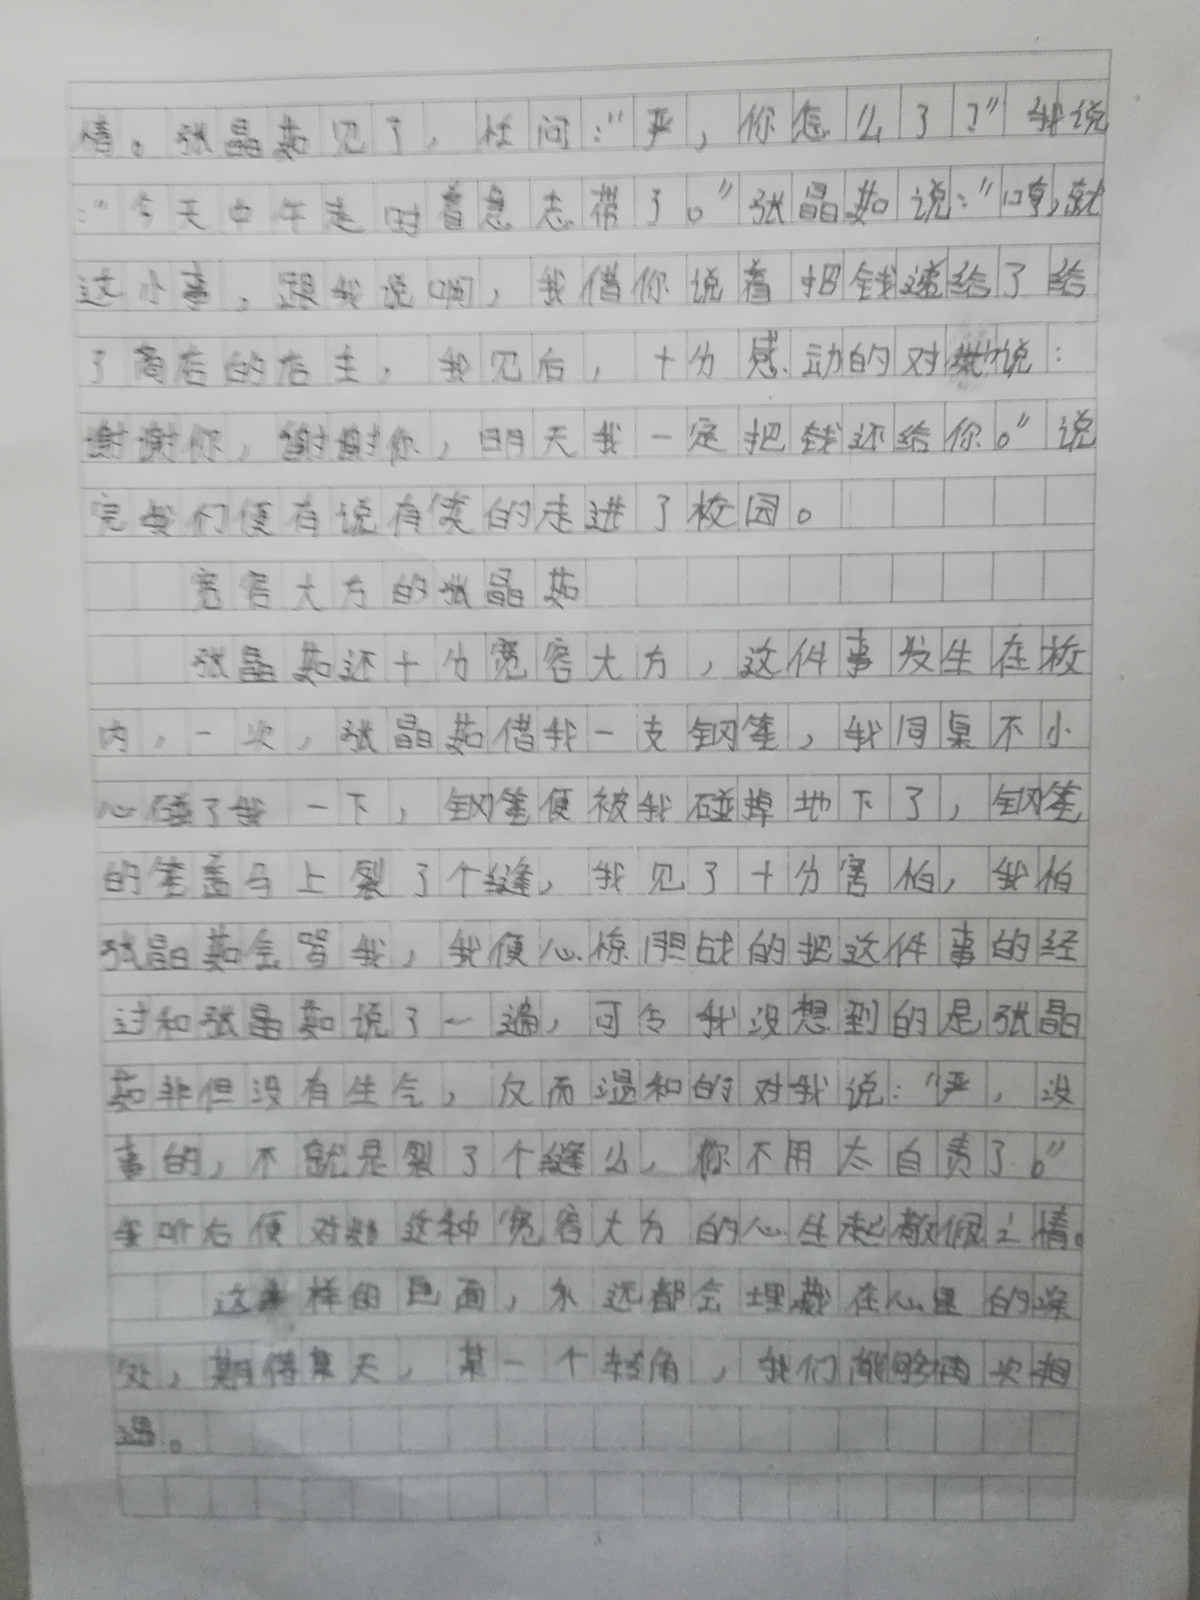 情。张晶茹见了，忙问：“严，你怎么了？”我说
：“今天中午走时着急忘带了。”张晶茹说：“哼，就
这小事，跟我说啊，我借你说着把钱递给了给
了商店的店主，我见后，十分感动的对她说：
谢谢你，谢谢你，明天我一定把钱还给你。”说
完我们便有说有笑的走进了校园。
宽容大方的张晶茹
张晶茹还十分宽容大方，这件事发生在校
内，一次，张晶茹借我一支钢笔，我同桌不小
心碰了我一下，钢笔便被我碰掉地下了，钢笔
的笔盖马上裂了个缝，我见了十分害怕，我怕
张晶茹会骂我，我便心惊胆战的把这件事的经
过和张晶茹说了一遍，可令我没想到的是张晶
茹非但没有生气，反而温和的对我说：“严，没
事的，不就是裂了个缝么，你不用太自责了。”
我听后便对她这种宽容大方的心生起敬佩之情。
这样的画面，永远都会埋藏在心里的深
处，期待某天，某一个转角，我们能够再次相
遇。